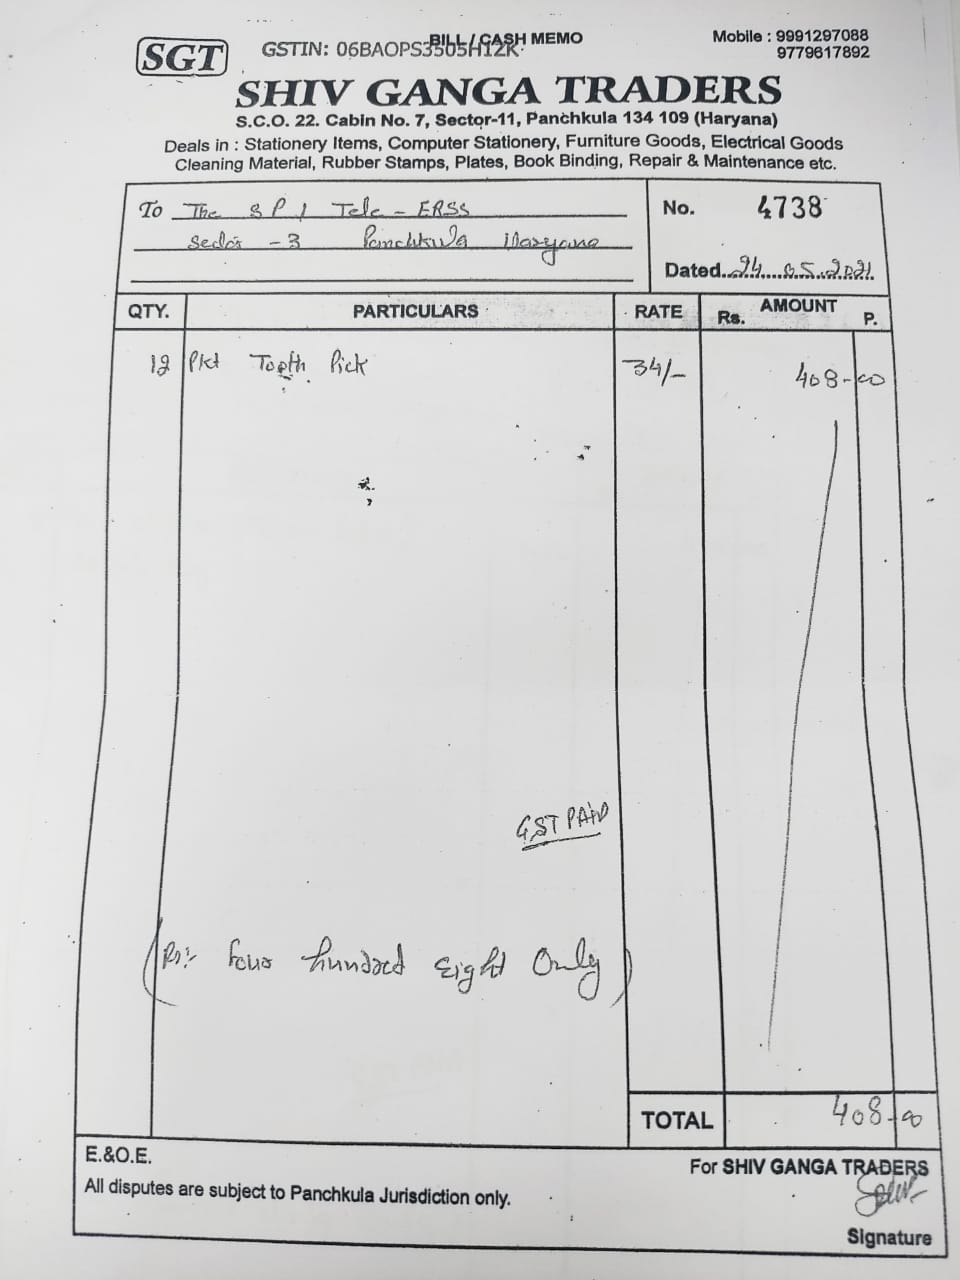 SGT
GSTIN: 06BAOPS3505H1ZK
BILL / CASH MEMO
Mobile : 9991297088
9779617892
SHIV GANGA TRADERS
S.C.O. 22. Cabin No. 7, Sector-11, Panchkula 134 109 (Haryana)
Deals in : Stationery Items, Computer Stationery, Furniture Goods, Electrical Goods
Cleaning Material, Rubber Stamps, Plates, Book Binding, Repair & Maintenance etc.
To The SP / Tele - ERSS
Sector - 3 Panchkula Haryana
No. 4738
Dated..24....05..2021
QTY. PARTICULARS RATE AMOUNT
Rs. P.
12 Pkt Tooth Pick 34/- 408-00
GST PAID
(Rs:- Four hundred Eight Only)
TOTAL 408-00
E.&O.E.
All disputes are subject to Panchkula Jurisdiction only.
For SHIV GANGA TRADERS
Signature